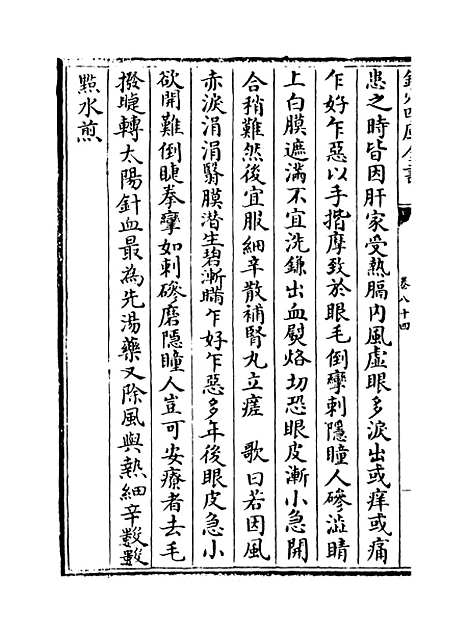 欽定四庫全書
卷八十四
患之時皆因肝家受熱膈内風虚眼多淚出或痒或痛
乍好乍惡以手揩摩致於眼毛倒攣刺隠瞳人磣澁睛
上白膜遮滿不宜洗鎌出血熨烙切恐眼皮漸小急開
合稍難然後宜服細辛散補腎丸立瘥　歌曰若因風
赤淚涓涓翳膜潛生碧漸瞞乍好乍惡多年後眼皮急小
欲開難倒睫拳攣如刺磣磨隠瞳人豈可安療者去毛
撥睫轉太陽針血最為先湯藥又除風與熱細辛數數
㸃水煎